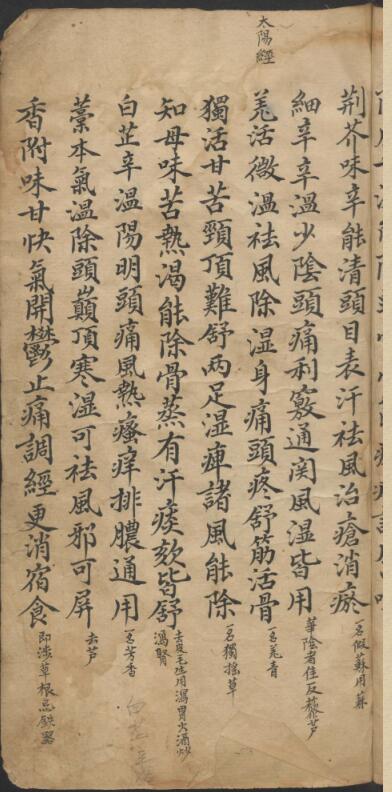 太陽經
荆芥味辛能清頭目表汗祛風治瘡消瘀 一名假蘇用蘇
細辛辛溫少陰頭痛利竅通関風湿皆用 華陰者佳反藜芦
羗活微溫祛風除湿身痛頭疼舒筋活骨 一名羗青
獨活甘苦頸頂難舒两足湿痺諸風能除 一名獨搖草
知母味苦熱渴能除骨蒸有汗痰欬皆舒 去皮毛生用瀉胃火酒炒瀉腎
白芷辛溫陽明頭痛風熱瘙痒排膿通用 一名芳香
藁本氣溫除頭巔頂寒湿可祛風邪可屏 去芦
香附味甘快氣開鬱止痛調經更消宿食 即莎草根忌鉄器